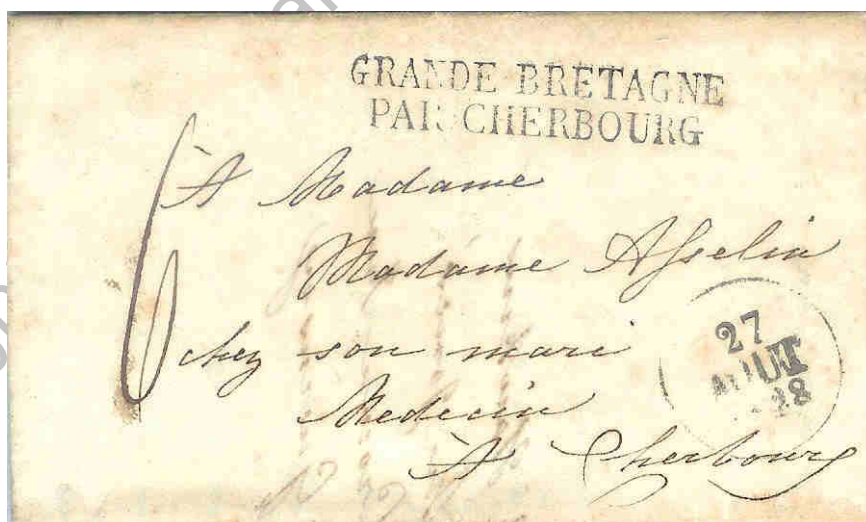 GRANDE BRETAGNE
PAR CHERBOURG
À Madame
Madame Asselin
chez son mari
Medecin
À Cherbourg
6
27
AOUT
28